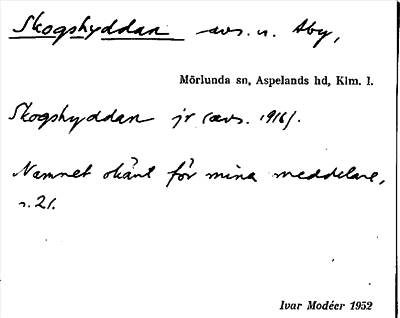 Skogshyddan avs. u. Åby,
Mörlunda sn, Aspelands hd, Klm. l.
Skogshyddan jr (avs. 1916).
Namnet okänt för mina meddelare,
s. 21.
Ivar Modéer 1952